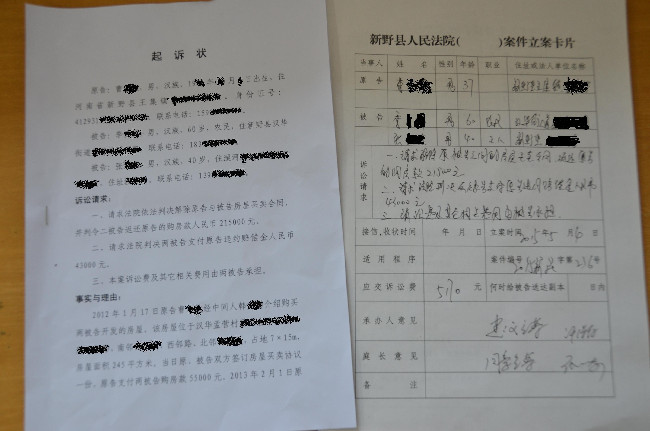 起 诉 状
原告：曹 男，汉族，19 年 月 日出生，住
河南省新野县王集镇 ，身份证号：
412931 联系电话：159
被告：李 男，汉族，60岁，农民，住新野县汉华
街道 联系电话：187
被告：张 男，汉族，40岁，住汉网
联系电话：139
诉讼请求：
一、请求法院依法判决解除原告与被告房屋买卖合同，
并判令二被告返还原告的购房款人民币 215000元。
二、请求法院判决两被告支付原告违约赔偿金人民币
43000元。
三、本案诉讼费及其它相关费用由两被告承担。
事实与理由：
2012年1月17日原告曹 经中间人韩 介绍购买
两被告开发的房屋，该房屋位于汉华孟营村
，南邻 ，西邻路，北邻 ，占地7×15m，
房屋面积245平方米。当日原、被告双方签订房屋买卖协议
一份，原告支付两被告购房款55000元。2013年2月1日原
新野县人民法院( )案件立案卡片
当事人 姓 名 性别 年龄 职业 住址或法人单位名称
原 告 曹 男 37
被 告 李 男 60 农民
张 男 40
诉讼请求
一、请求解除原被告之间的房屋买卖合同，返还原告
的购房款215000元
接待、收状时间 年 月 日 立案时间 2015年5月6日
适 用 程 序 案件编号 字第216号
应 交 诉 讼 费 570 元 何时给被告送达副本 日内
承 办 人 意 见 建议立案
庭 长 意 见 同意立案
备 注